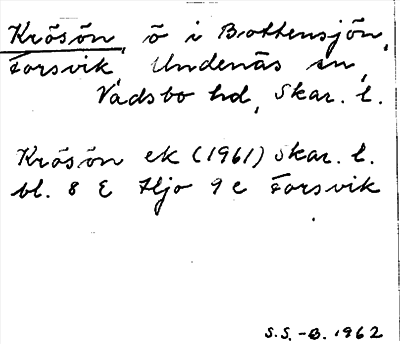 Krösön, ö i Bottensjön,
Forsvik, Undenäs sn,
Vadsbo hd, Skar. l.
Krösön ek (1961) Skar. l.
bl. 8 E Hjo 9 e Forsvik
S.S.-B. 1962